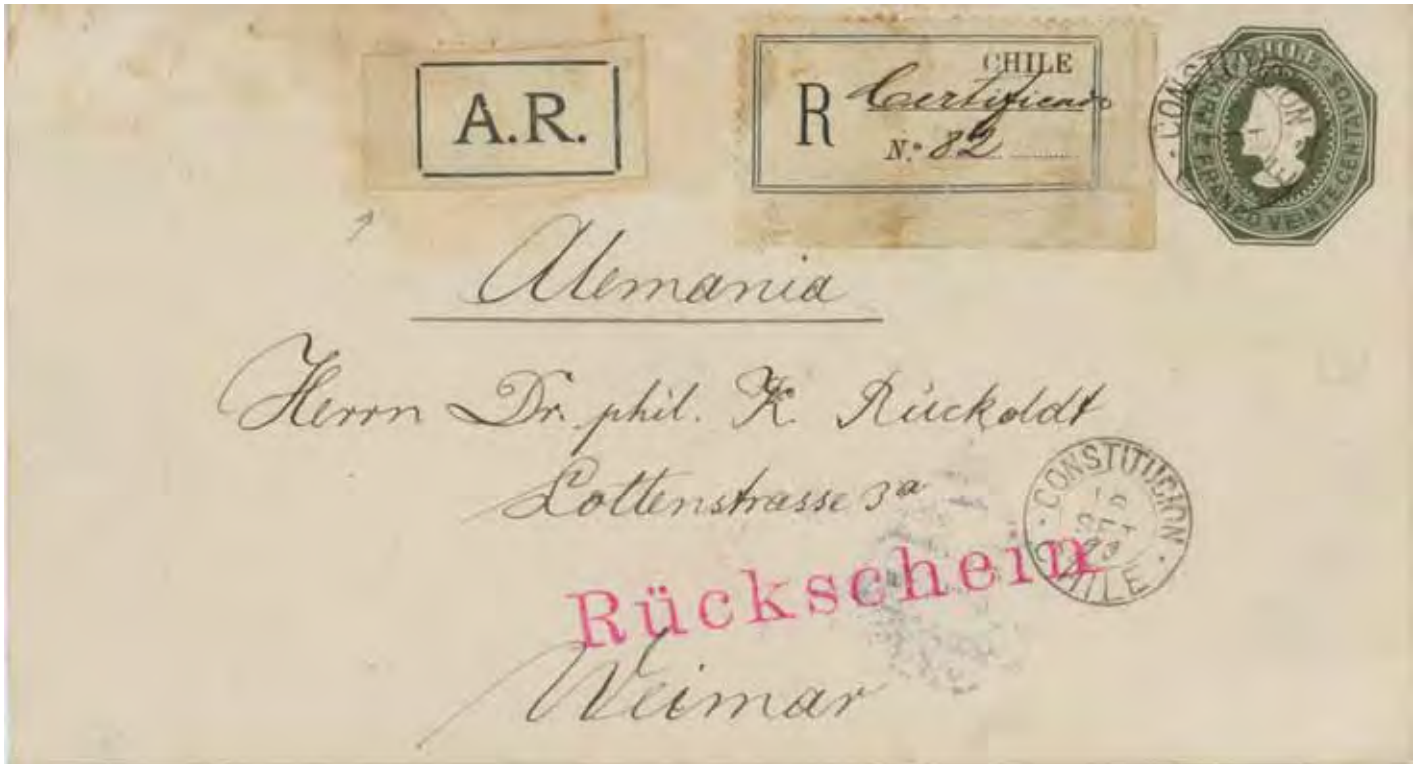 A.R.
CHILE
R Certificado
N.º 82
CONSTITUCION
PORTE FRANCO VEINTE CENTAVOS
Alemania
Herrn Dr. phil. K. Rückoldt
Lottenstrasse 3a
CONSTITUCION
93
CHILE
Rückschein
Weimar